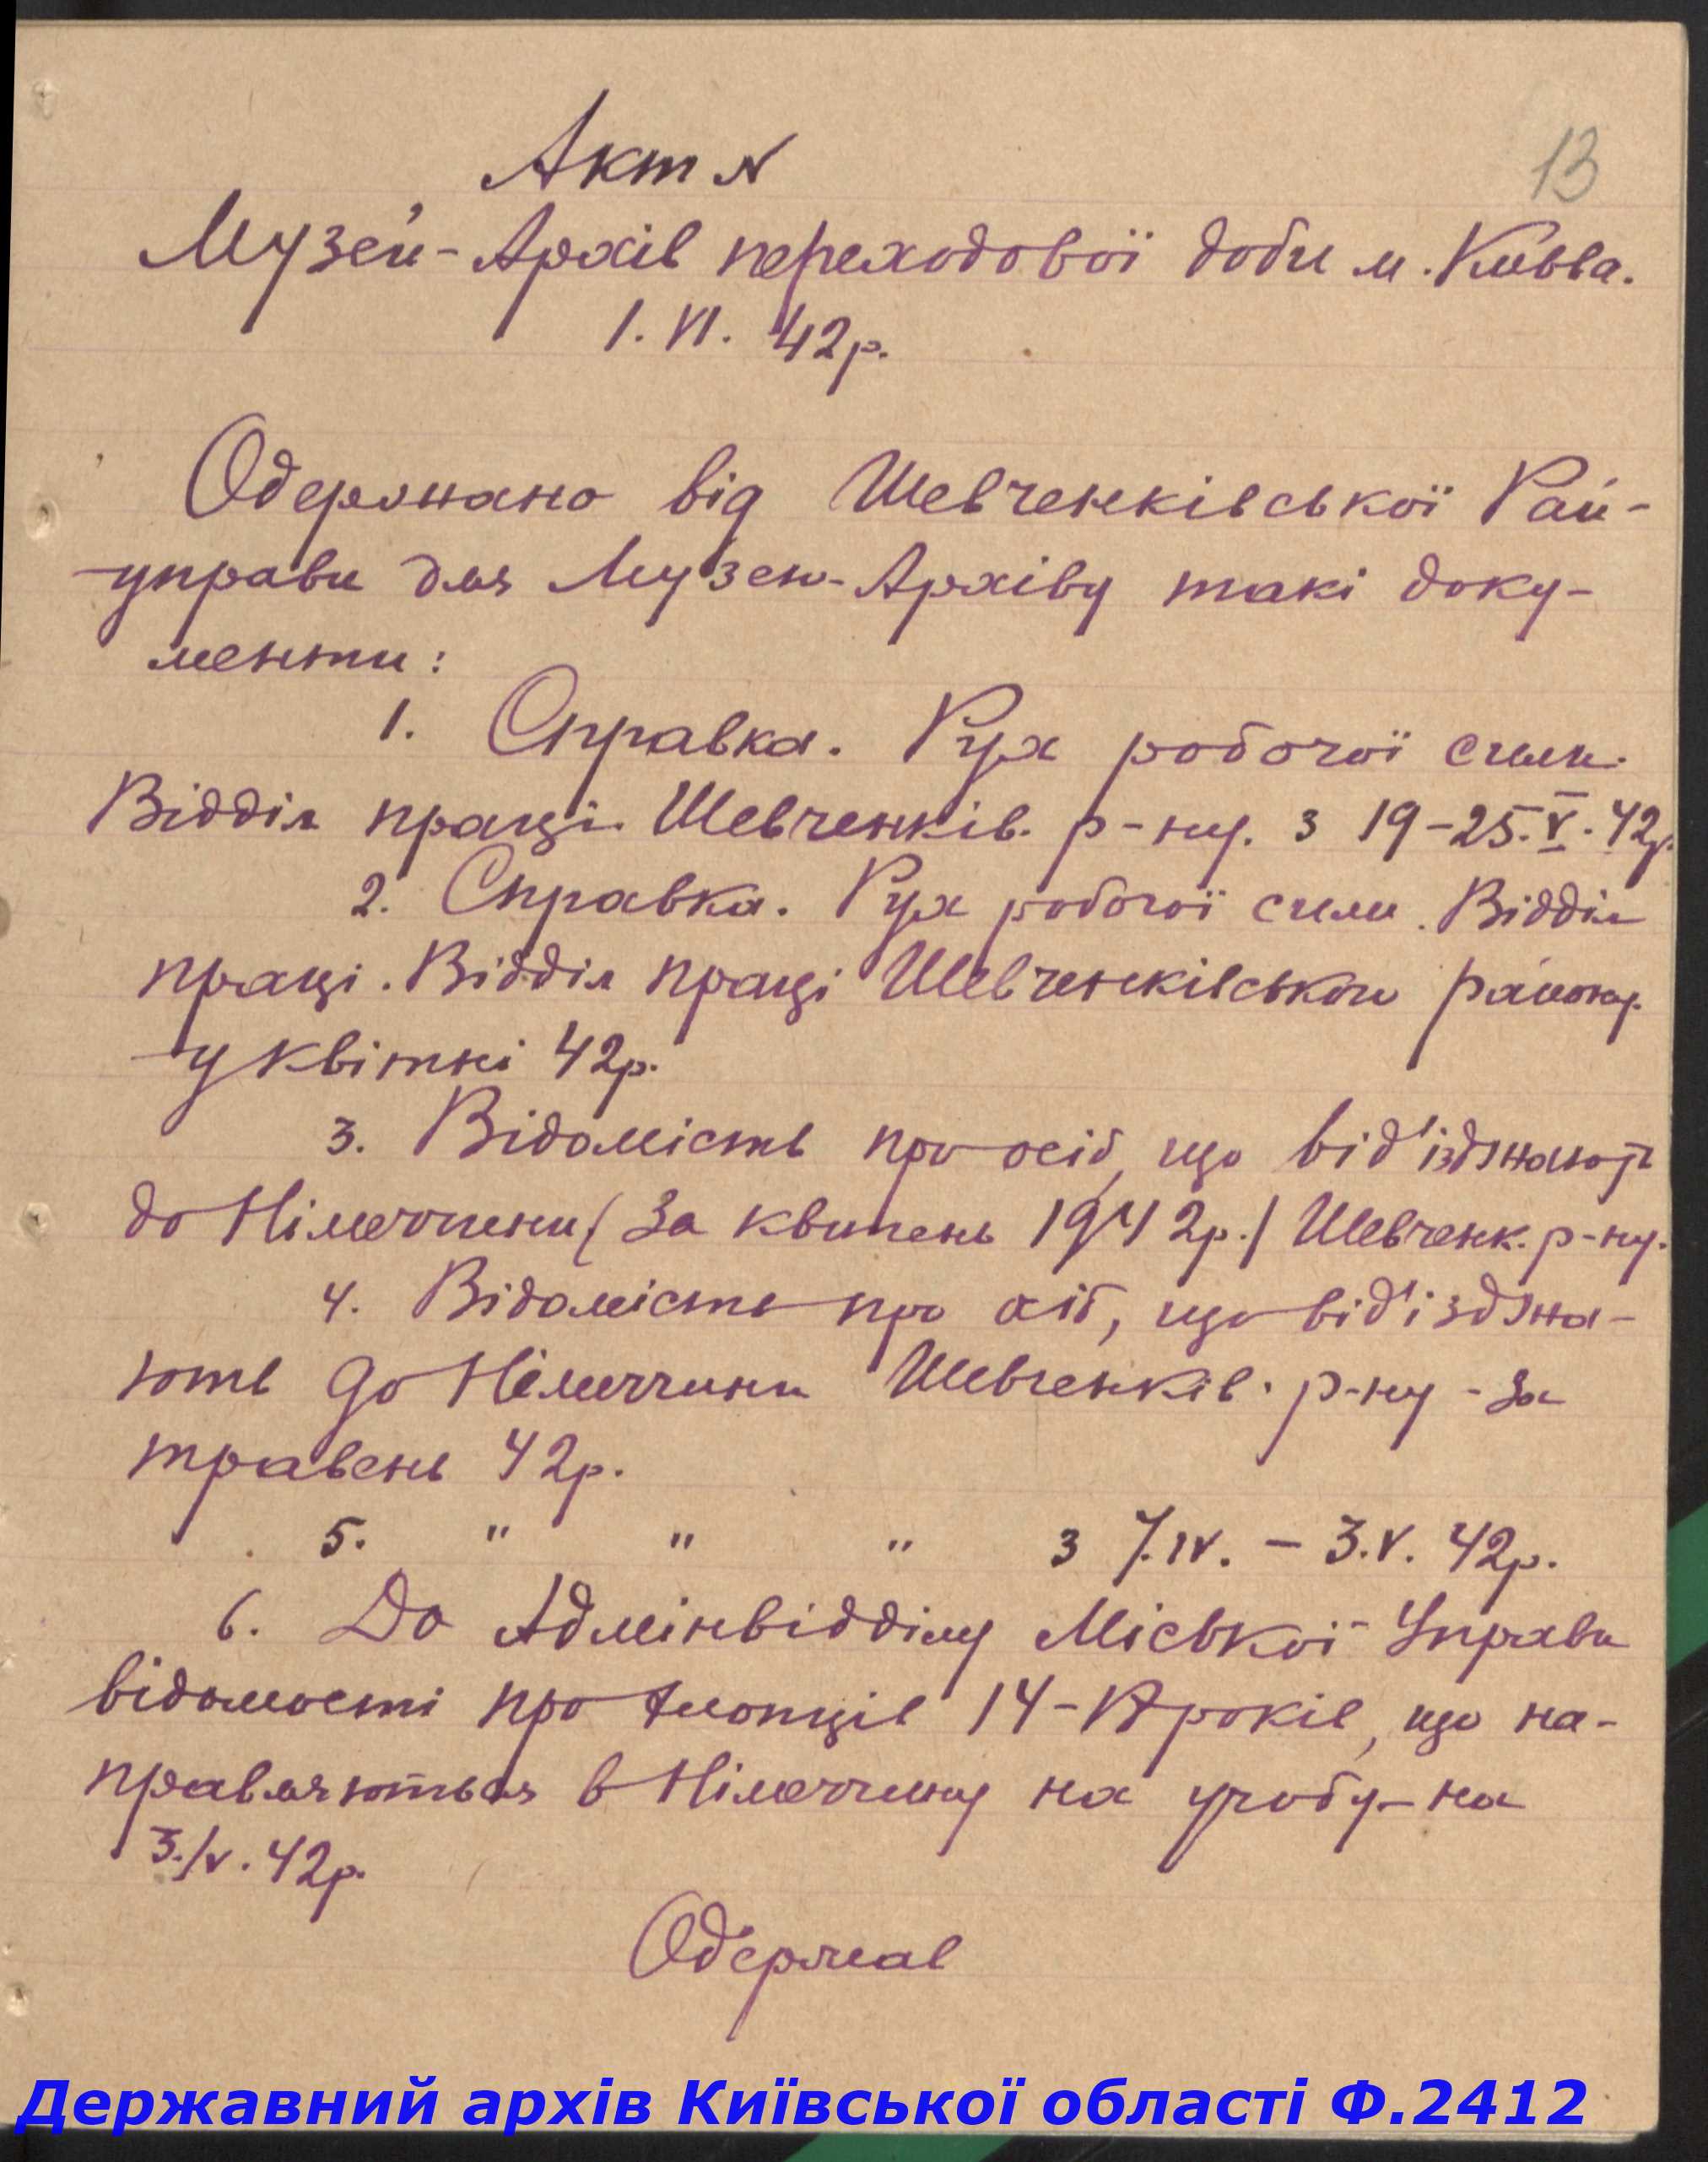 Акт №
13
Музей-Архів переходової доби м. Київа.
1. VI. 42р.
Одержано від Шевченківської Рай-
управи для Музею-Архіву такі доку-
менти:
1. Справка. Рух робочої сили.
Відділ праці Шевченків. р-ну. з 19-25.V.42р.
2. Справка. Рух робочої сили. Відділ
праці. Відділ праці Шевченківськ. району.
у квітні 42р.
3. Відомість про осіб, що від'їзджають
до Німеччини /За квітень 1942р./ Шевченк. р-ну.
4. Відомість про осіб, що від'їзджа-
ють до Німеччини Шевченків. р-ну - За
травень 42р.
5. " " " з 7.IV. - 3.V. 42р.
6. До Адмінвідділу Міської Управи
відомості про хлопців 14-17 років, що на-
правляються в Німеччину на учобу-на
3./V. 42р.
Одержав
Державний архів Київської області Ф.2412